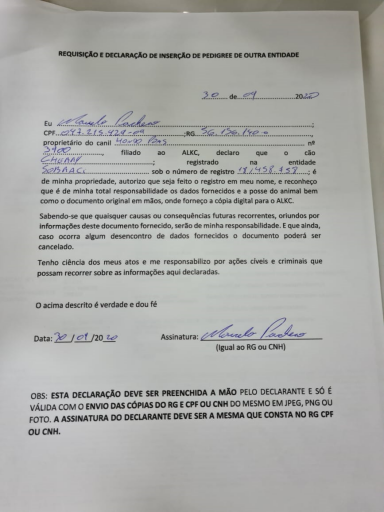 REQUISIÇÃO E DECLARAÇÃO DE INSERÇÃO DE PEDIGREE DE OUTRA ENTIDADE
30 de 09 2020
Eu Marcelo Pacheco ;
CPF 047.215.429-09 ;RG
proprietário do canil nº
3900 , filiado ao ALKC, declaro que o cão
CHURRY ; registrado na entidade
SOBRACI sob o número de registro ; é
de minha propriedade, autorizo que seja feito o registro em meu nome, e reconheço
que é de minha total responsabilidade os dados fornecidos e a posse do animal bem
como o documento original em mãos, onde forneço a cópia digital para o ALKC.
Sabendo-se que quaisquer causas ou consequências futuras recorrentes, oriundos por
informações deste documento fornecido, serão de minha responsabilidade. E que ainda,
caso ocorra algum desencontro de dados fornecidos o documento poderá ser
cancelado.
Tenho ciência dos meus atos e me responsabilizo por ações cíveis e criminais que
possam recorrer sobre as informações aqui declaradas.
O acima descrito é verdade e dou fé
Data: 30 / 09 /2020 Assinatura: Marcelo Pacheco
(Igual ao RG ou CNH)
OBS: ESTA DECLARAÇÃO DEVE SER PREENCHIDA A MÃO PELO DECLARANTE E SÓ É
VÁLIDA COM O ENVIO DAS CÓPIAS DO RG E CPF OU CNH DO MESMO EM JPEG, PNG OU
FOTO. A ASSINATURA DO DECLARANTE DEVE SER A MESMA QUE CONSTA NO RG CPF
OU CNH.